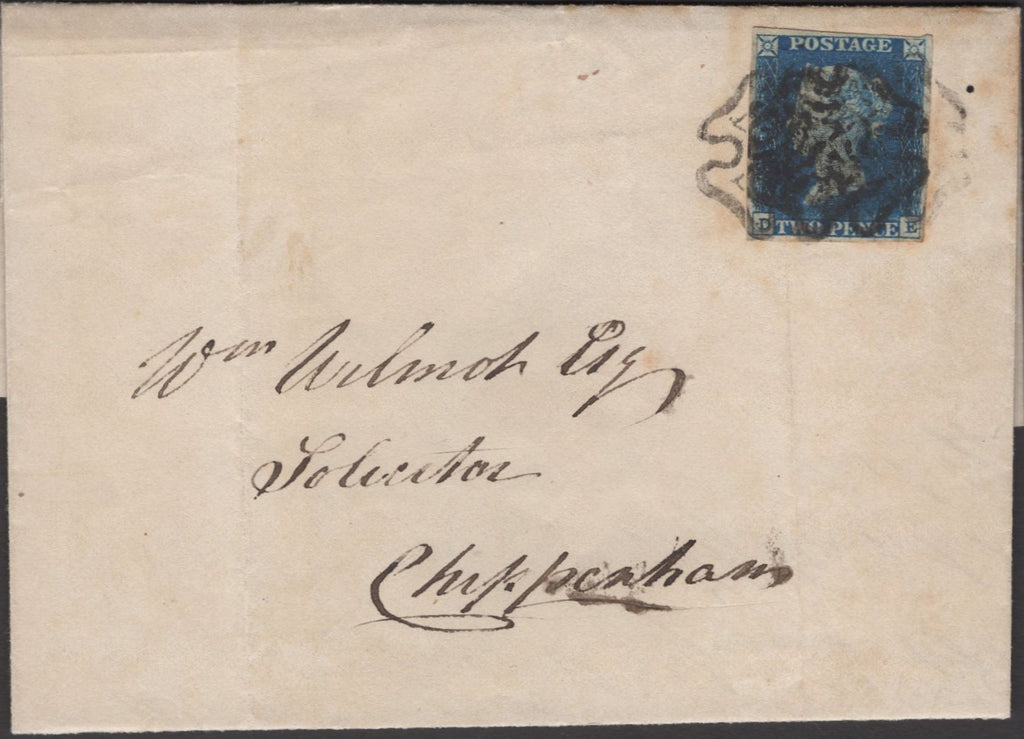 POSTAGE
D TWO PENCE E
Wm Wilmot Esq
Solicitor
Chippenham